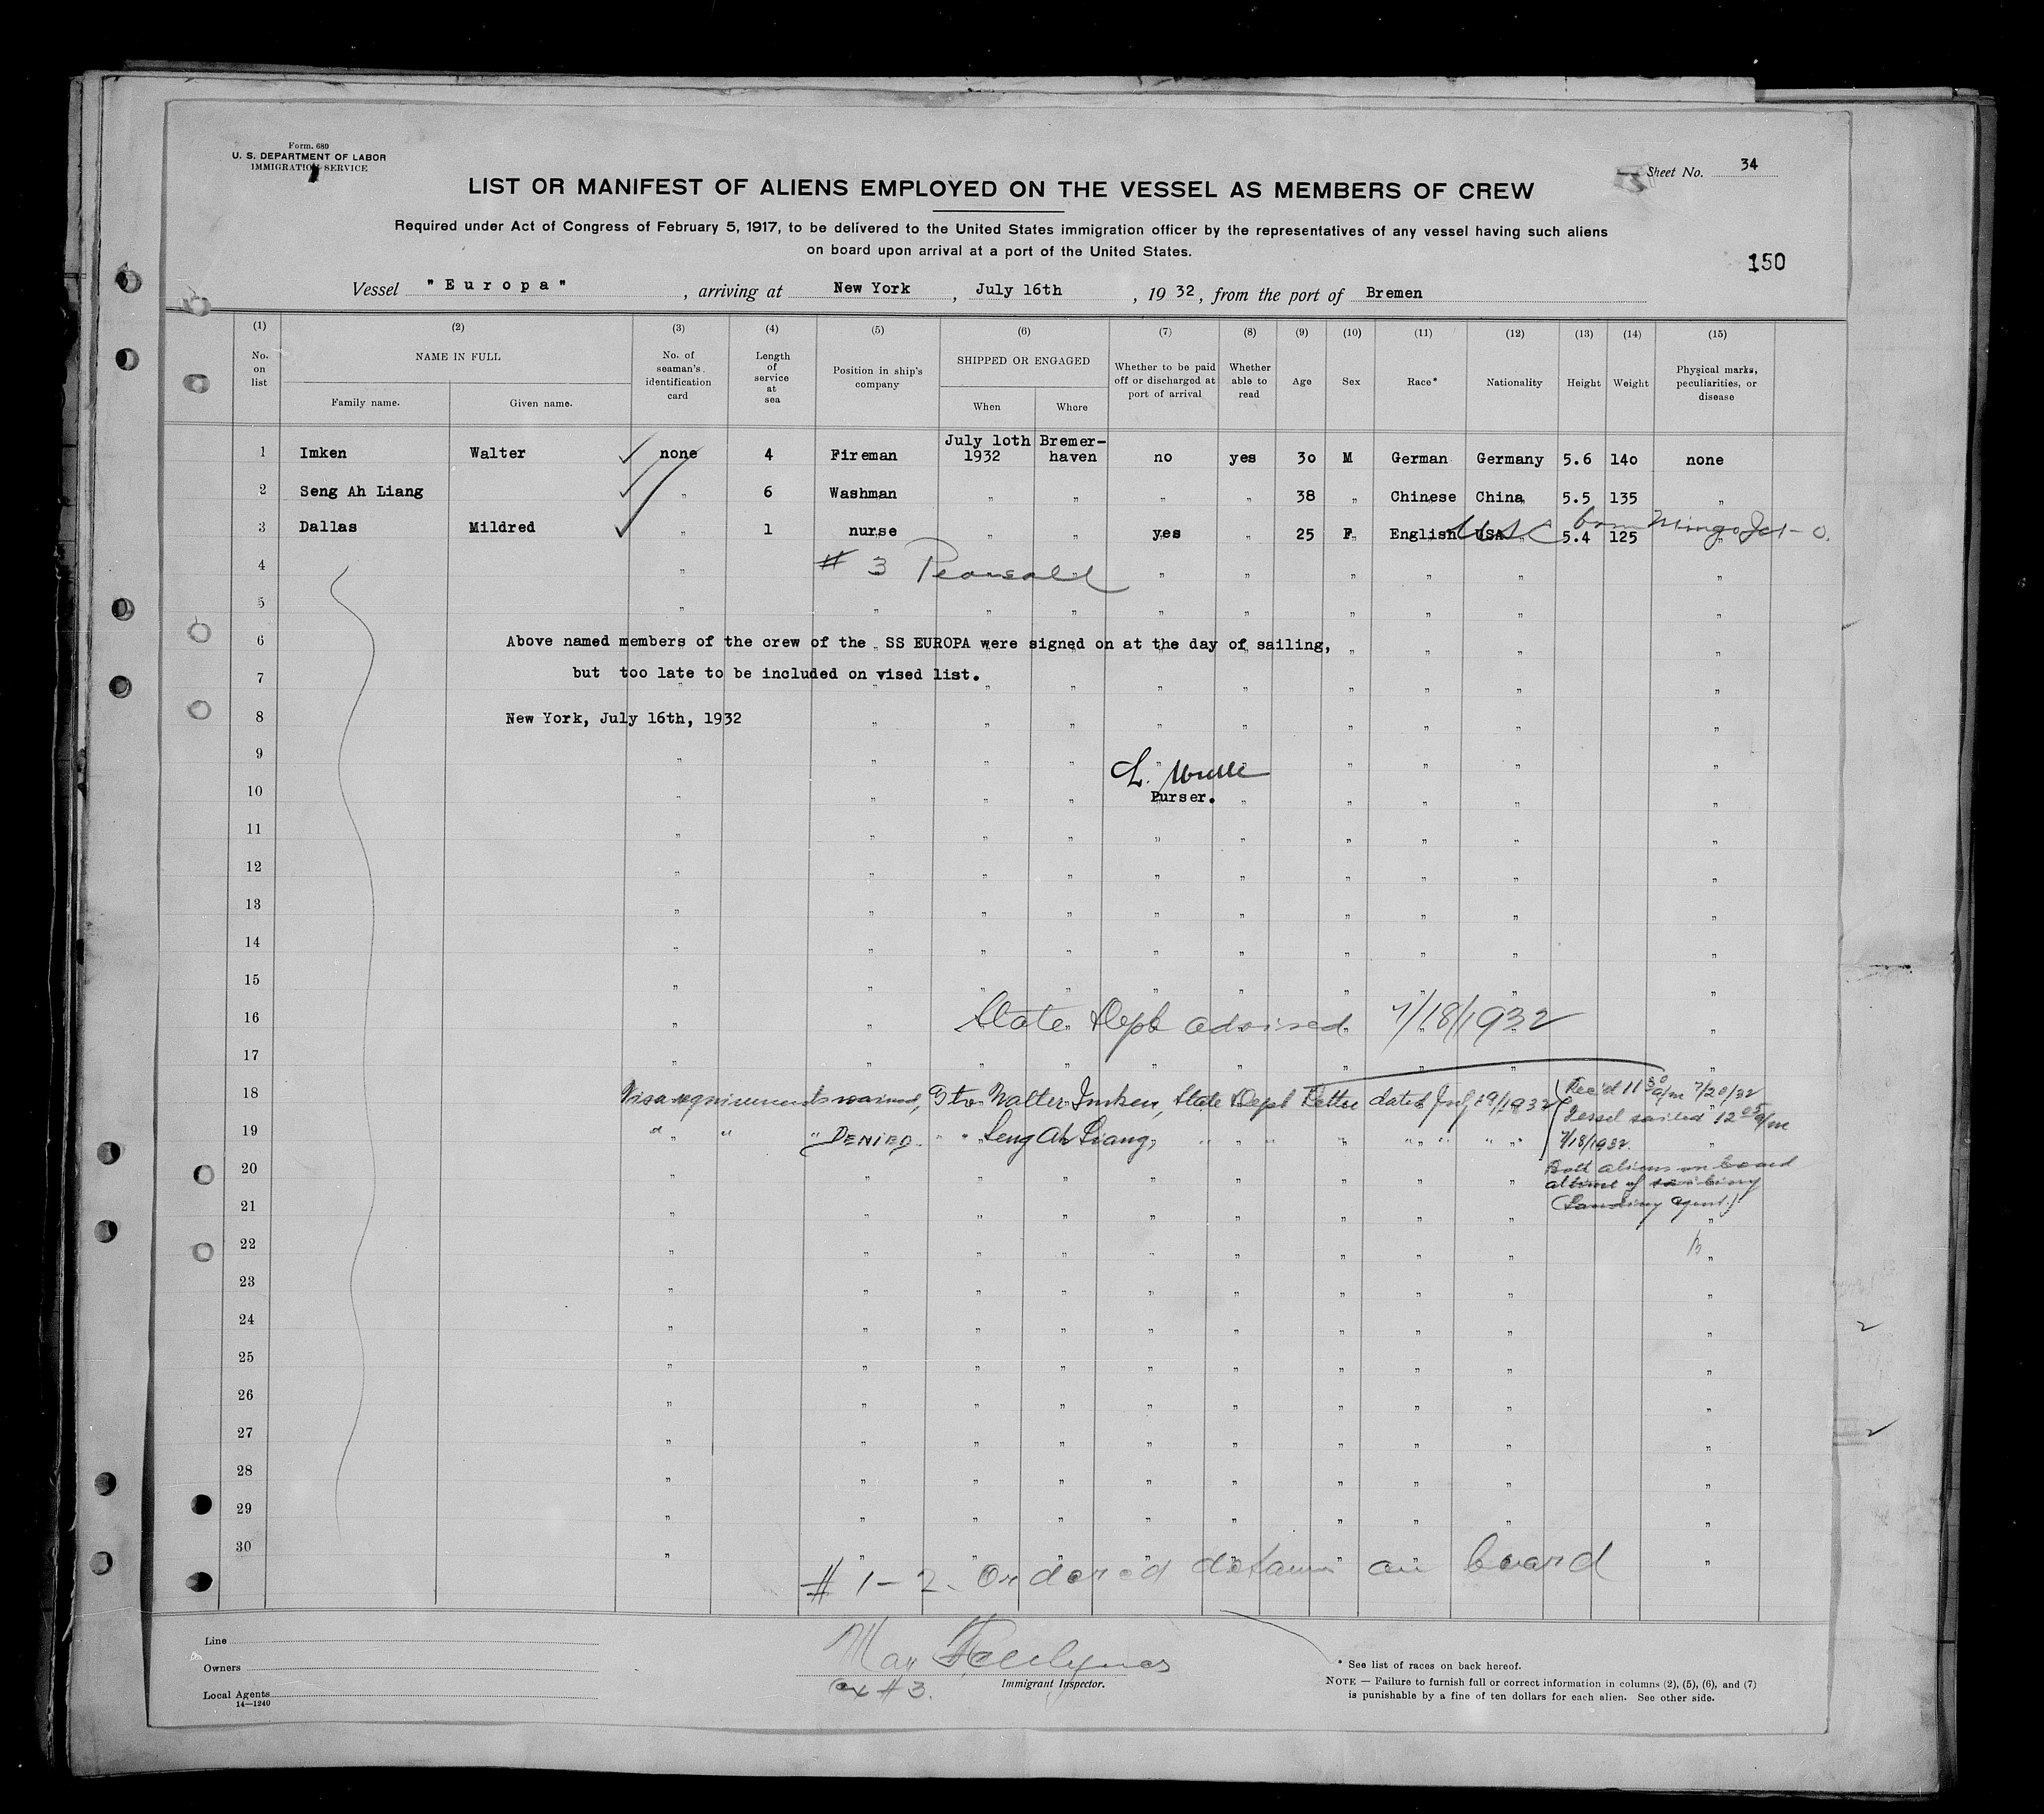 Form. 680
U. S. DEPARTMENT OF LABOR
IMMIGRATION SERVICE
Sheet No. 34
LIST OR MANIFEST OF ALIENS EMPLOYED ON THE VESSEL AS MEMBERS OF CREW
Required under Act of Congress of February 5, 1917, to be delivered to the United States immigration officer by the representatives of any vessel having such aliens
on board upon arrival at a port of the United States.
150
Vessel "Europa", arriving at New York, July 16th, 1932, from the port of Bremen
(1) (2) (3) (4) (5) (6) (7) (8) (9) (10) (11) (12) (13) (14) (15)
No. on list NAME IN FULL Family name. Given name. No. of seaman's identification card Length of service at sea Position in ship's company SHIPPED OR ENGAGED When Where Whether to be paid off or discharged at port of arrival Whether able to read Age Sex Race* Nationality Height Weight Physical marks, peculiarities, or disease
1 Imken Walter none 4 Fireman July 1oth 1932 Bremer-haven no yes 3o M German Germany 5.6 14o none
2 Seng Ah Liang " 6 Washman " " " " 38 " Chinese China 5.5 135 "
3 Dallas Mildred " 1 nurse " " yes " 25 F English USA 5.4 125 "
USC born Mingo Jct - O.
4 # 3 Pearsall
5
6 Above named members of the crew of the SS EUROPA were signed on at the day of sailing,
7 but too late to be included on vised list.
8 New York, July 16th, 1932
9
10 Purser.
11
12
13
14
15
16 State Dept advised 7/18/1932
17
18 Visa requirements waived, to Walter Imken, State Dept Letter dated July 19/1932 (Rec'd 11 30 a/m 7/20/32
Vessel sailed 12 05 a/m
19 " " " DENIED " " Seng Ah Liang, " " " " " " " " " 7/18/1932.
20 Both aliens on board
at time of sailing
21 (Landing agent.)
22
23
24
25
26
27
28
29
30
# 1-2. Ordered detain on board
Max
Immigrant Inspector.
ex # 3.
Line
Owners
Local Agents
14—1240
* See list of races on back hereof.
NOTE — Failure to furnish full or correct information in columns (2), (5), (6), and (7)
is punishable by a fine of ten dollars for each alien. See other side.